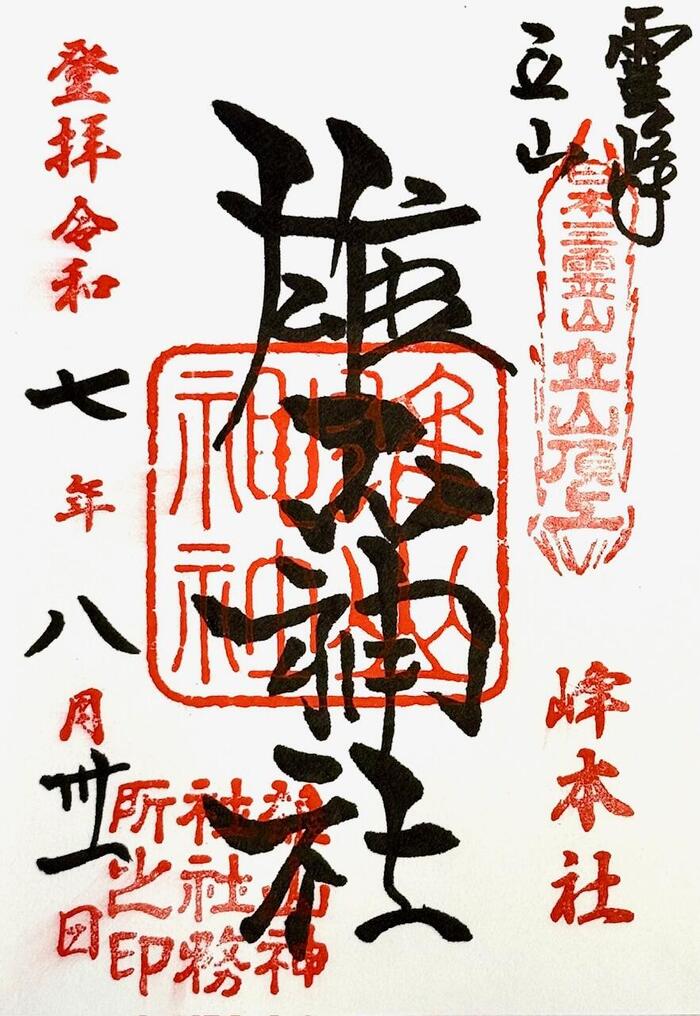 霊峰
立山
日本三霊山立山頂上
峰本社
雄山神社
雄山
神社
登拝令和七年八月卅一日
雄山神
社社務
所之印